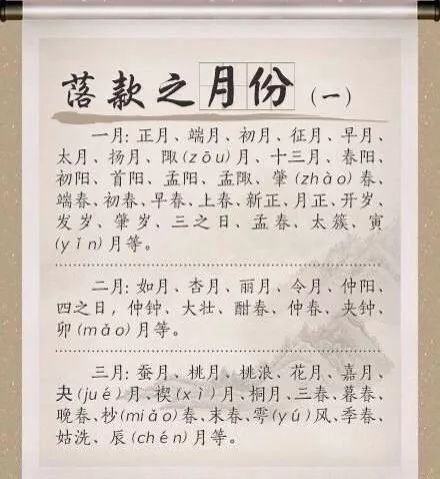 落款之月份（一）
一月: 正月、端月、初月、征月、早月、
太月、扬月、陬(zōu)月、十三月、春阳、
初阳、首阳、孟阳、孟陬、肇(zhào)春、
端春、初春、早春、上春、新正、月正、开岁、
发岁、肇岁、三之日、孟春、太簇、寅
(yīn)月等。
二月: 如月、杏月、丽月、令月、仲阳、
四之日，仲钟、大壮、酣春、仲春、夹钟、
卯(mǎo)月等。
三月: 蚕月、桃月、桃浪、花月、嘉月、
夬(jué)月、禊(xì)月、桐月、三春、暮春、
晚春、杪(miǎo)春、末春、雩(yú)风、季春、
姑洗、辰(chén)月等。